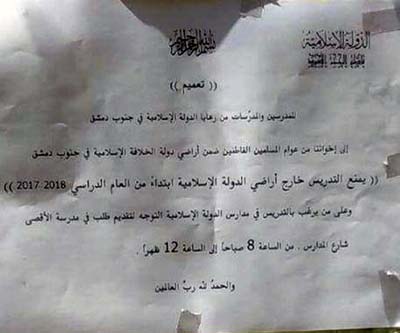 بسم الله الرحمن الرحيم
الدولة الإسلامية
(( تعميم ))
للمدرسين والمدرِّسات من رعايا الدولة الإسلامية في جنوب دمشق
إلى إخواننا من عوام المسلمين القاطنين ضمن أراضي دولة الخلافة الإسلامية في جنوب دمشق
(( يمنع التدريس خارج أراضي الدولة الإسلامية ابتداءً من العام الدراسي 2018-2017 ))
وعلى من يرغب بالتدريس في مدارس الدولة الإسلامية التوجه لتقديم طلب في مدرسة الأقصى
شارع المدارس . من الساعة 8 صباحاً إلى الساعة 12 ظهراً .
والحمدُ لله ربِّ العالمين